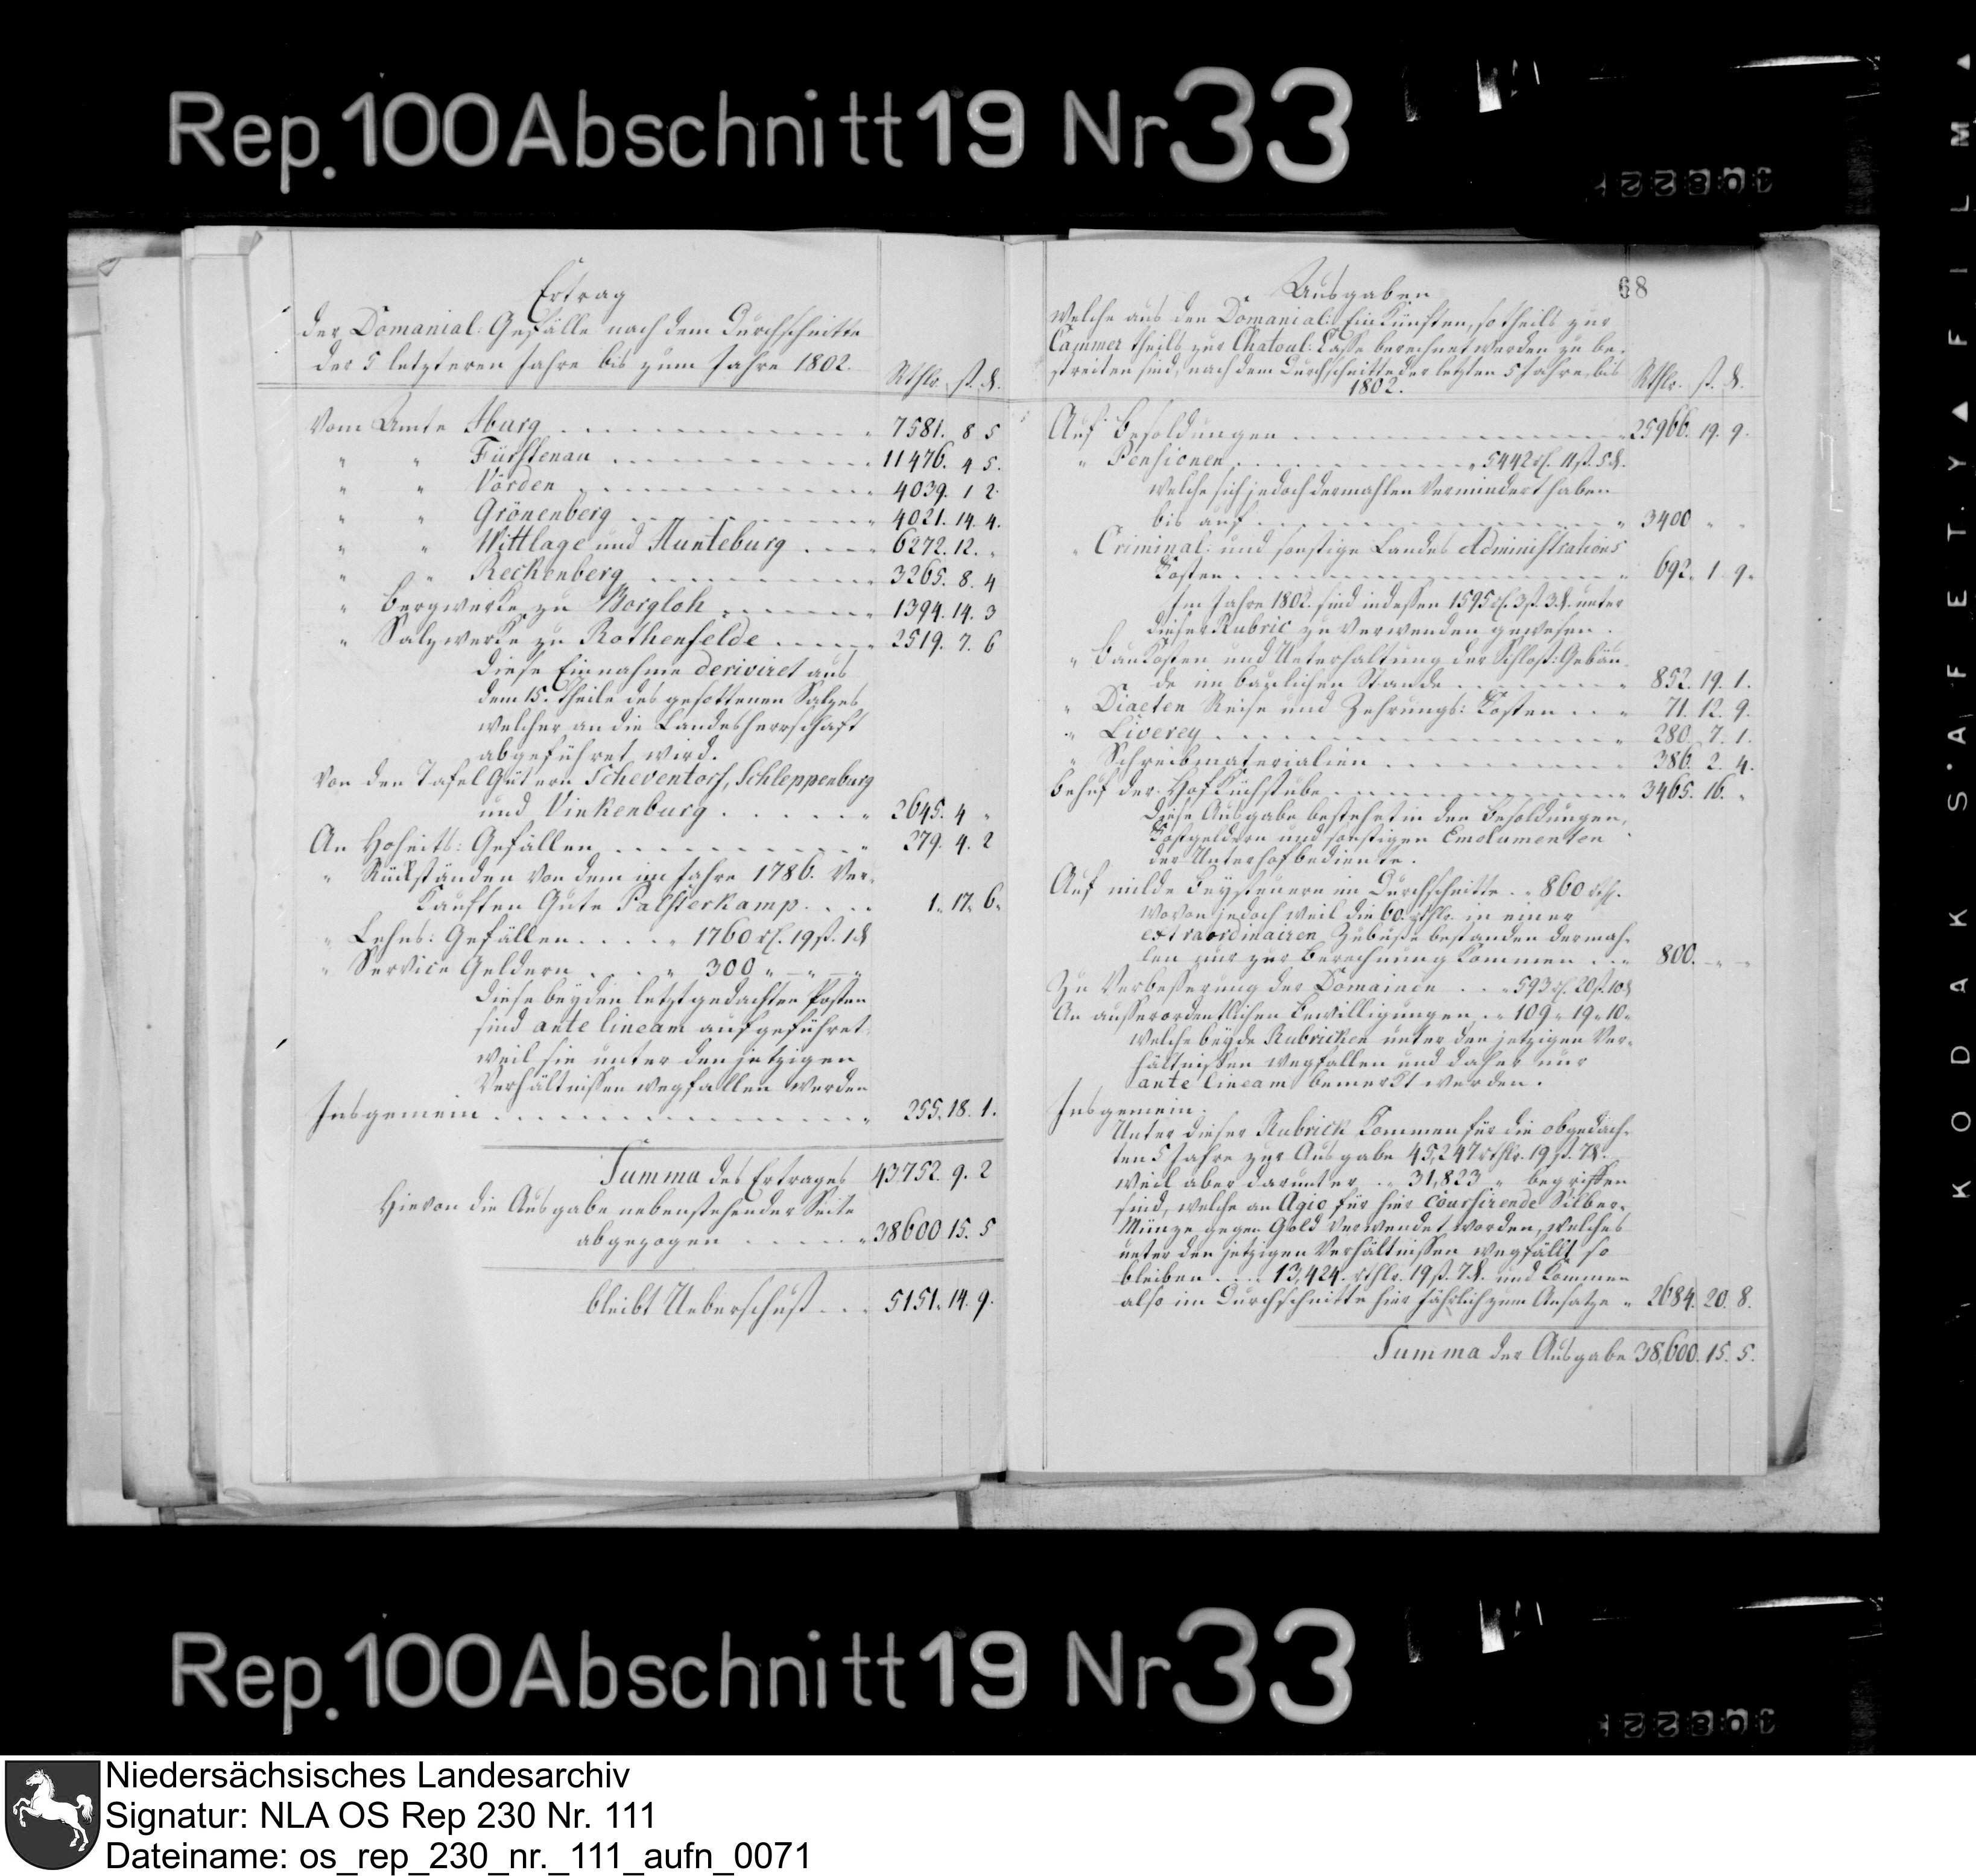 Rep. 100 Abschnitt 19 Nr 33
Ertrag
der Domanial: Gefälle nach dem Durchschnitte
der 5 letzteren Jahre bis zum Jahre 1802.
Rthlr. ß. d.
Vom Amte Iburg . . . " 7581. 8 5
" " Fürstenau . . . " 11476. 4 5.
" " Vörden . . . " 4039. 1 2.
" " Grönenberg . . . " 4021. 14. 4.
" " Wittlage und Hunteburg . . . " 6272. 12. "
" " Reckenberg . . . " 3265. 8. 4
" Bergwerke zu Borgloh . . . " 1394. 14. 3
" Salzwerke zu Rothenfelde . . . " 2519. 7. 6
diese Einnahme deriviret aus
dem 15. Theile des gesottenen Salzes
welcher an die Landesherrschaft
abgeführet wird.
Von den Tafel Gütern Scheventorf, Schleppenburg
und Vinkenburg . . . " 2645. 4 "
An Hoheits: Gefällen . . . " 279. 4. 2
" Rückständen von dem im Jahre 1786. ver-
kauften Gute Palsterkamp . . . " 1. 17. 6.
" Lehns: Gefällen . . . " 1760 rl. 19 ß. 1 d
" Service Geldern . . . " 300 " — " — "
diese beyden letztgedachten Posten
sind ante lineam aufgeführet
weil sie unter den jetzigen
Verhältnissen wegfallen werden
Insgemein . . . " 255. 18. 1.
Summa des Ertrages 43752. 9. 2
Hievon die Ausgabe nebenstehender Seite
abgezogen . . . " 38600 15. 5
bleibt Ueberschuß . . . 5151. 14. 9.
68
Ausgaben
welche aus den Domanial: Einkünften, so theils zur
Cammer theils zur Chatoul: Casse berechnet werden zu be-
streiten sind, nach dem Durchschnitte der letzten 5 Jahre, bis
1802.
Rthlr. ß. d.
Auf Besoldungen . . . " 25966. 19. 9.
" Pensionen . . . " 5442 rl. 11 ß. 5 d.
welche sich jedoch dermahlen vermindert haben
bis auf . . . " 3400 " "
" Criminal: und sonstige Landes Administrations
Kosten . . . " 692. 1. 9.
Im Jahre 1802. sind indessen 1595 rl. 3 ß. 3 d. unter
dieser Rubric zu verwenden gewesen.
" Baukosten und Unterhaltung der Schloß: Gebäu-
de im baulichen Stande . . . " 852. 19. 1.
" Diaeten Reise und Zehrungs: Kosten . . " 71. 12. 9.
" Liverey . . . " 280. 7. 1.
" Schreibmaterialien . . . " 386. 2. 4.
Behuf der Hof Küchstube . . . " 3465. 16. "
Diese Ausgabe bestehet in den Besoldungen,
Kostgeldern und sonstigen Emolumenten
der Unterhofbediente.
Auf milde Beysteuern im Durchschnitte . " 860 rthl.
wovon jedoch weil die 60. rthlr. in einer
extraordinairen Zubuße bestanden dermah-
len nur zur Berechnung kommen . . " 800. — " —
Zu Verbesserung der Domainen . . " 593 rl. 20 ß. 10 d
An ausserordentlichen Bewilligungen . " 109 " 19 " 10 "
welche beyde Rubricken unter den jetzigen Ver-
hältnissen wegfallen und daher nur
ante lineam bemerkt werden.
Insgemein.
Unter dieser Rubrick kommen für die obgedach-
ten 5 Jahre zur Ausgabe 45,247 rthlr. 19 ß. 7 d.
weil aber darunter . " 31,823 " begriffen
sind, welche an Agio für hier coursirende Silber-
Münze gegen Gold verwendet worden, welches
unter den jetzigen Verhältnissen wegfällt so
bleiben . . . 13,424. rthlr. 19 ß. 7 d. und kommen
also im Durchschnitte hier jährlich zum Ansatze " 2684. 20. 8.
Summa der Ausgabe 38,600. 15. 5.
KODAK SAFETY FILM
Rep. 100 Abschnitt 19 Nr 33
Niedersächsisches Landesarchiv
Signatur: NLA OS Rep 230 Nr. 111
Dateiname: os_rep_230_nr._111_aufn_0071